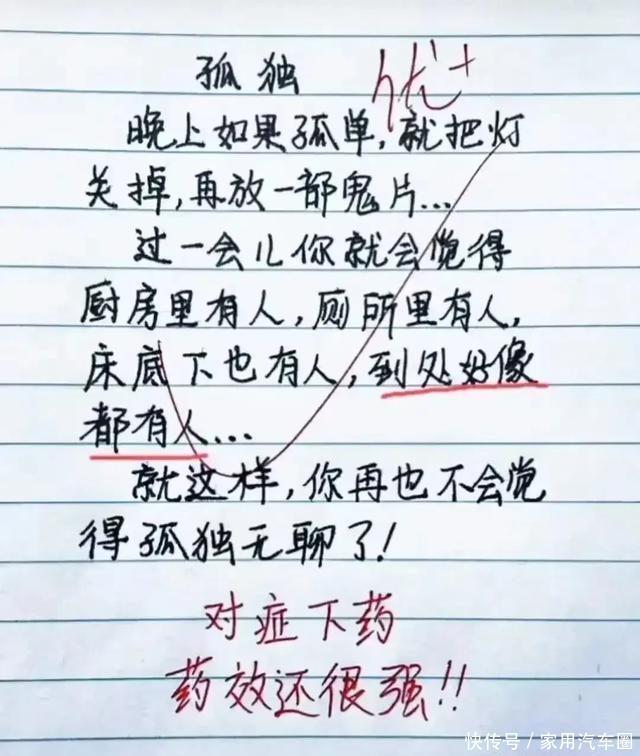 孤独
优+
晚上如果孤单,就把灯
关掉,再放一部鬼片...
过一会儿你就会觉得
厨房里有人,厕所里有人,
床底下也有人,到处好像
都有人...
就这样,你再也不会觉
得孤独无聊了!
对症下药
药效还很强!!
快传号/家用汽车圈